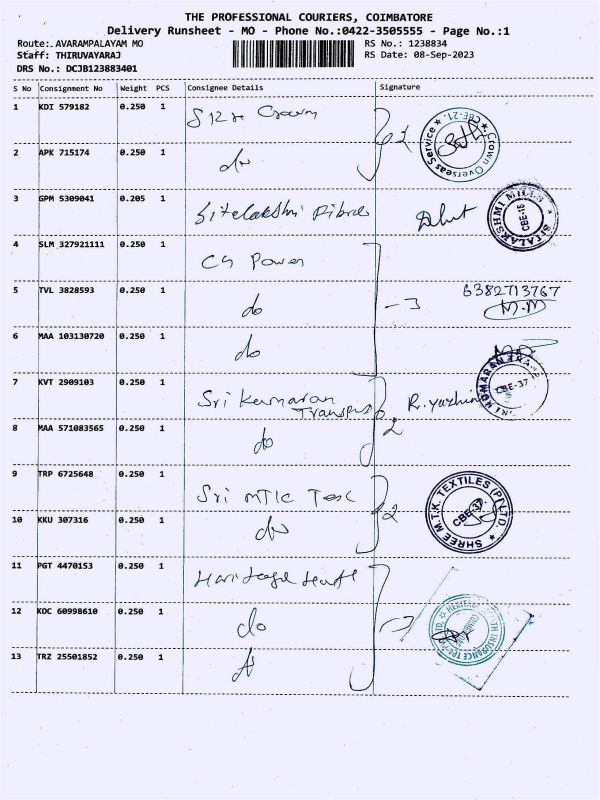 THE PROFESSIONAL COURIERS, COIMBATORE
Delivery Runsheet - MO - Phone No.:0422-3505555 - Page No.:1
Route:.AVARAMPALAYAM MO
RS No.: 1238834
Staff: THIRUVAYARAJ
RS Date: 08-Sep-2023
DRS No.: DCJB123883401
S No Consignment No Weight PCS Consignee Details Signature
1 KDI 579182 0.250 1
CBE-21.
Crown Overseas Service
2
2 APK 715174 0.250 1 do
3 GPM 5309041 0.205 1 Sitalakshmi Fibres
SITALAKSHMI MILLS
CBE-16
4 SLM 327921111 0.250 1 CG Power
5 TVL 3828593 0.250 1 do
- 3
6382713767
M.M
6 MAA 103130720 0.250 1 do
7 KVT 2909103 0.250 1 Sri Kumaran
Transpo
2
CBE-37
8 MAA 571083565 0.250 1 do
9 TRP 6725648 0.250 1 Sri MTK Tex
2
SHREE M.T.K. TEXTILES (P) LTD.
CBE-37.
10 KKU 307316 0.250 1 do
11 PGT 4470153 0.250 1 Heritage Health
12 KOC 60998610 0.250 1 do
3
HERITAGE HEALTH INSURANCE TPA PVT LTD.
13 TRZ 25501852 0.250 1